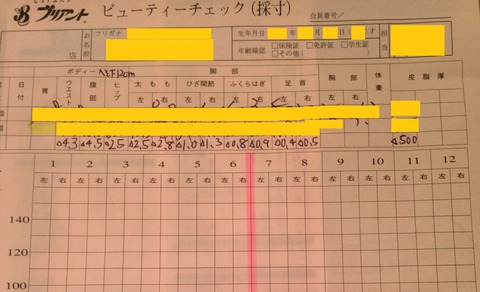 B ブリアント ビューティーチェック(採寸) 会員番号/
店 お名前 フリガナ 生年月日 年 月 日 才 担当
年齢確認 □保険証 □免許証 □学生証
□その他(
ボディー 脚部
日付 胃 ウエスト 腹部 ヒップ 太もも ひざ関節 ふくらはぎ 足首 胸部 体重 皮脂厚 担当
左 右 左 右 左 右 左 右 左 右
△4.3 △4.5 △2.5 △2.5 △2.8 △1.0 △1.3 △0.8 △0.9 △0.4 △0.5 △500
1 2 3 4 5 6 7 8 9 10 11 12
左 右 左 右 左 右 左 右 左 右 左 右 左 右 左 右 左 右 左 右 左 右 左 右
140
120
100